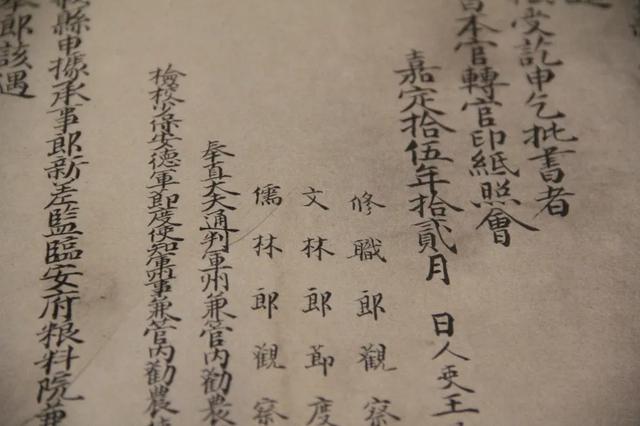 受訖申乞批書者
本官轉官印紙照會
嘉定拾伍年拾貳月 日人吏王
修職郎觀察
文林郎節度
儒林郎觀察
奉直大夫通判軍州兼管内勸農
檢校少保安德軍節度使知軍事兼管内勸農
縣申據承事郎新差監臨安府粮料院兼
郎該遇